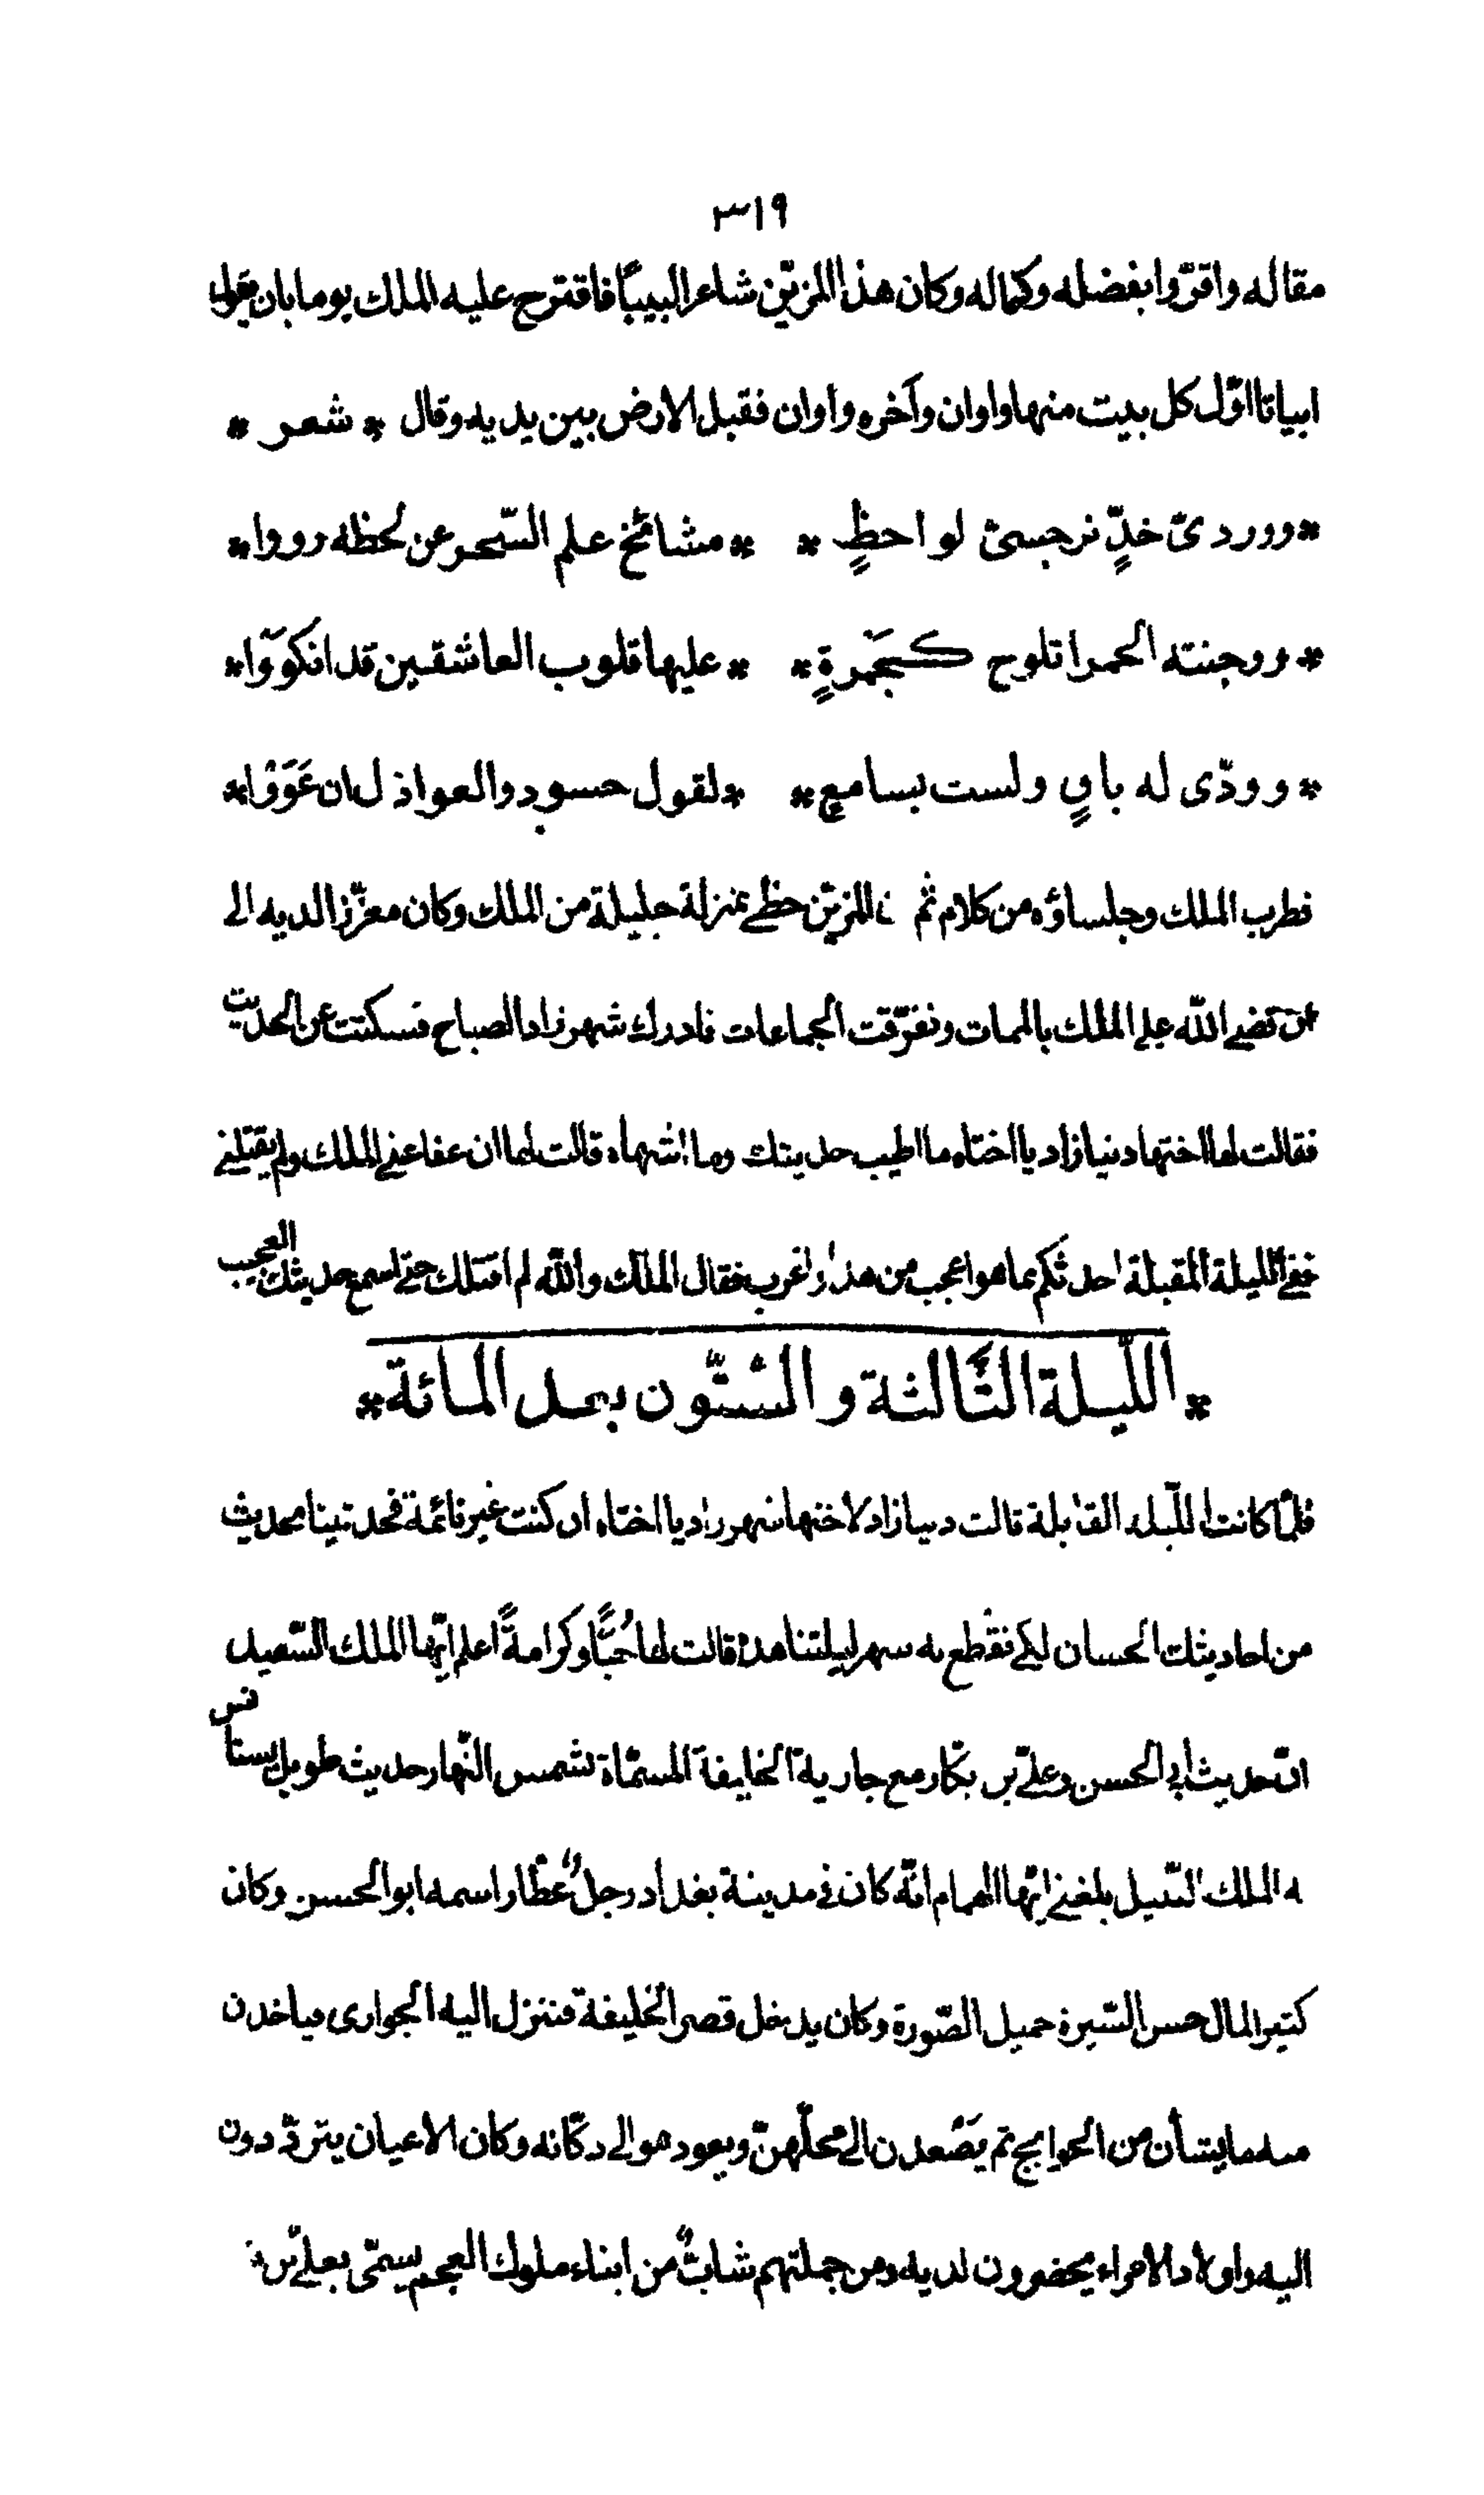 ٣١٩
مقاله واقرّوا بفضله وكماله وكان هذا المزيّن شاعرا لبيبًا فاقترح عليه الملك يوما بان يقول
ابياتا اوّل كل بيت منها واوان وآخره واوان فقبل الارض بين يديه وقال * شعر *
* ووردىّ خدٍّ نرجسىّ لواحظٍ * * مشائخ علم السّحر عن لحظه رووا *
* ووجنته الحمرا تلوح كجَمْرةٍ * * عليها قلوب العاشقين قد انكَووَا *
* وودّى له باقٍ ولست بسامعٍ * * لقول حسودٍ والعواذل ان عَوَوْا *
فطرب الملك وجلساؤه من كلامه ثم المزيّن حظى بمنزلة جليلة من الملك وكان معزّزا لديه الى
قضى الله على الملك بالممات وتفرّقت الجماعات فادرك شهرزاد الصباح فسكتت عن الحديث
فقالت لها اختها دنيازاد يا اختاه ما اطيب حديثك وما اشهاه قالت لها ان عفا عنى الملك ولم يقتلنى
ففى اللّيلة المقبلة احدثكم بما هو اعجب من هذا واغرب فقال الملك والله لم اقتلك حتى اسمع حديثك العجيب
* اللّيلة الثّالثة والسّتّون بعد المائة *
فلمّا كانت اللّيلة القابلة قالت دنيازاد لاختها شهرزاد يا اختاه ان كنت غير نائمة فحدثينا بحديث
من احاديثك الحسان لكى نقطع به سهر ليلتنا هذه قالت لها حُبًّا وكرامةً اعلم ايّها الملك السّعيد
انّ حديث أبى الحسن وعلىّ بن بكّار مع جارية الخليفة المسمّاة شمس النّهار حديث طويل يستانس
به الملك النّبيل بلغنى ايّها الهمام انّه كان فى مدينة بغداد رجلٌ عطّار اسمه ابو الحسن وكان
كثير المال حسن السّيرة جميل الصّورة وكان يدخل قصر الخليفة فتنزل اليه الجوارى وياخذن
منه ما يشأن من الحوايج ثم يصْعدن الى محلّهنّ ويعود هو الى دكّانه وكان الاعيان يتردّدون
اليه وأولاد الامراء يحضرون لديه ومن جملتهم شابٌّ من ابناء ملوك العجم يسمّى بعلىّ بن